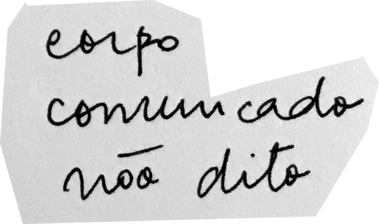 corpo
comunicado
não dito